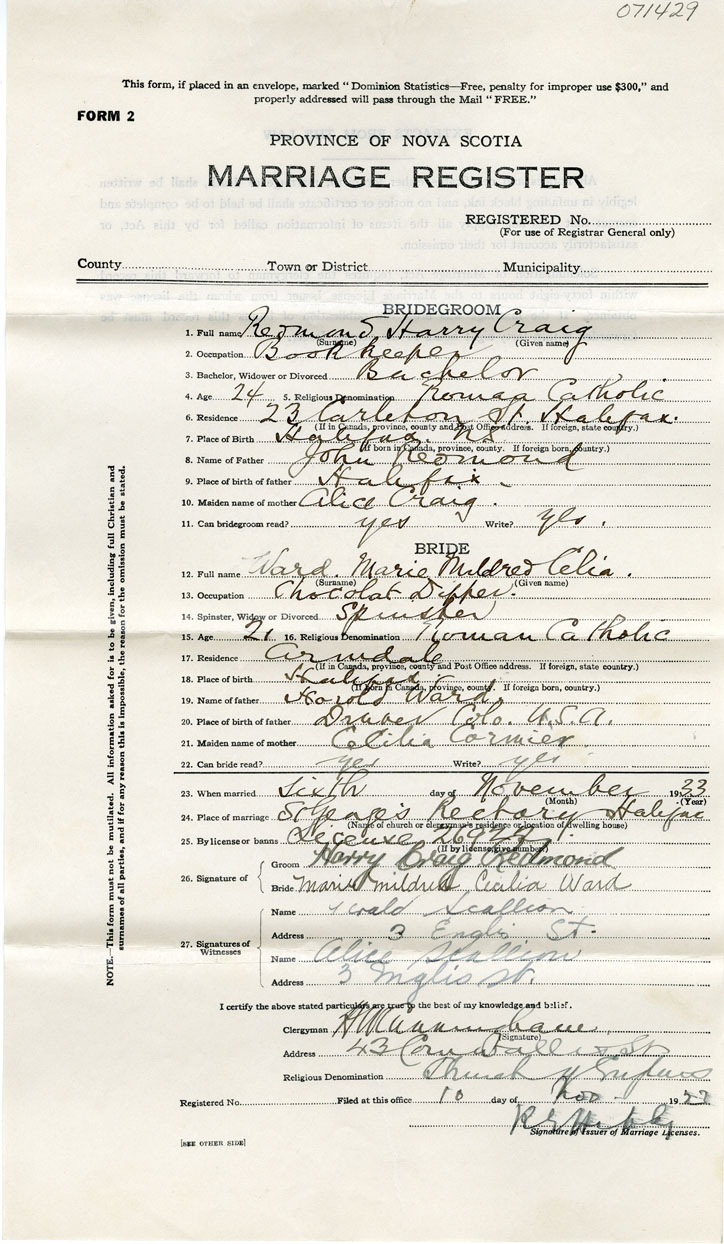 071429
This form, if placed in an envelope, marked "Dominion Statistics—Free, penalty for improper use $300," and
properly addressed will pass through the Mail "FREE."
FORM 2
PROVINCE OF NOVA SCOTIA
MARRIAGE REGISTER
REGISTERED No.
(For use of Registrar General only)
County Town or District Municipality
BRIDEGROOM
1. Full name Redmond, Harry Craig
(Surname) (Given name)
2. Occupation Book keeper
3. Bachelor, Widower or Divorced Bachelor
4. Age 24 5. Religious Denomination Roman Catholic
6. Residence 23 Carleton St. Halifax.
(If in Canada, province, county and Post Office address. If foreign, state country.)
7. Place of Birth Halifax. NS
(If born in Canada, province, county. If foreign born, country.)
8. Name of Father John Redmond
9. Place of birth of father Halifax
10. Maiden name of mother Alice Craig.
11. Can bridegroom read? yes Write? yes.
BRIDE
12. Full name Ward. Marie Mildred Celia.
(Surname) (Given name)
13. Occupation Chocolat Dipper.
14. Spinster, Widow or Divorced Spinster
15. Age 21 16. Religious Denomination Roman Catholic
17. Residence Armdale
(If in Canada, province, county and Post Office address. If foreign, state country.)
18. Place of birth Halifax
(If born in Canada, province, county. If foreign born, country.)
19. Name of father Harold Ward.
20. Place of birth of father Denver Colo. U.S.A.
21. Maiden name of mother Cecilia Cormier
22. Can bride read? yes Write? yes
23. When married sixth day of November 1933
(Month) (Year)
24. Place of marriage St George's Rectory Halifax
(Name of church or clergyman's residence or location of dwelling house)
25. By license or banns License
(If by license give number)
26. Signature of
Groom Harry Craig Redmond
Bride Marie Mildred Cecilia Ward
27. Signatures of Witnesses
Name Scallion
Address 3 Inglis St.
Name Alice Scallion
Address 3 Inglis St.
I certify the above stated particulars are true to the best of my knowledge and belief.
Clergyman
(Signature)
Address 43 Cornwallis St
Religious Denomination Church of England
Registered No. Filed at this office 10 day of Nov. 19
Signature of Issuer of Marriage Licenses.
[SEE OTHER SIDE]
NOTE.—This form must not be mutilated. All information asked for is to be given, including full Christian and
surnames of all parties, and if for any reason this is impossible, the reason for the omission must be stated.